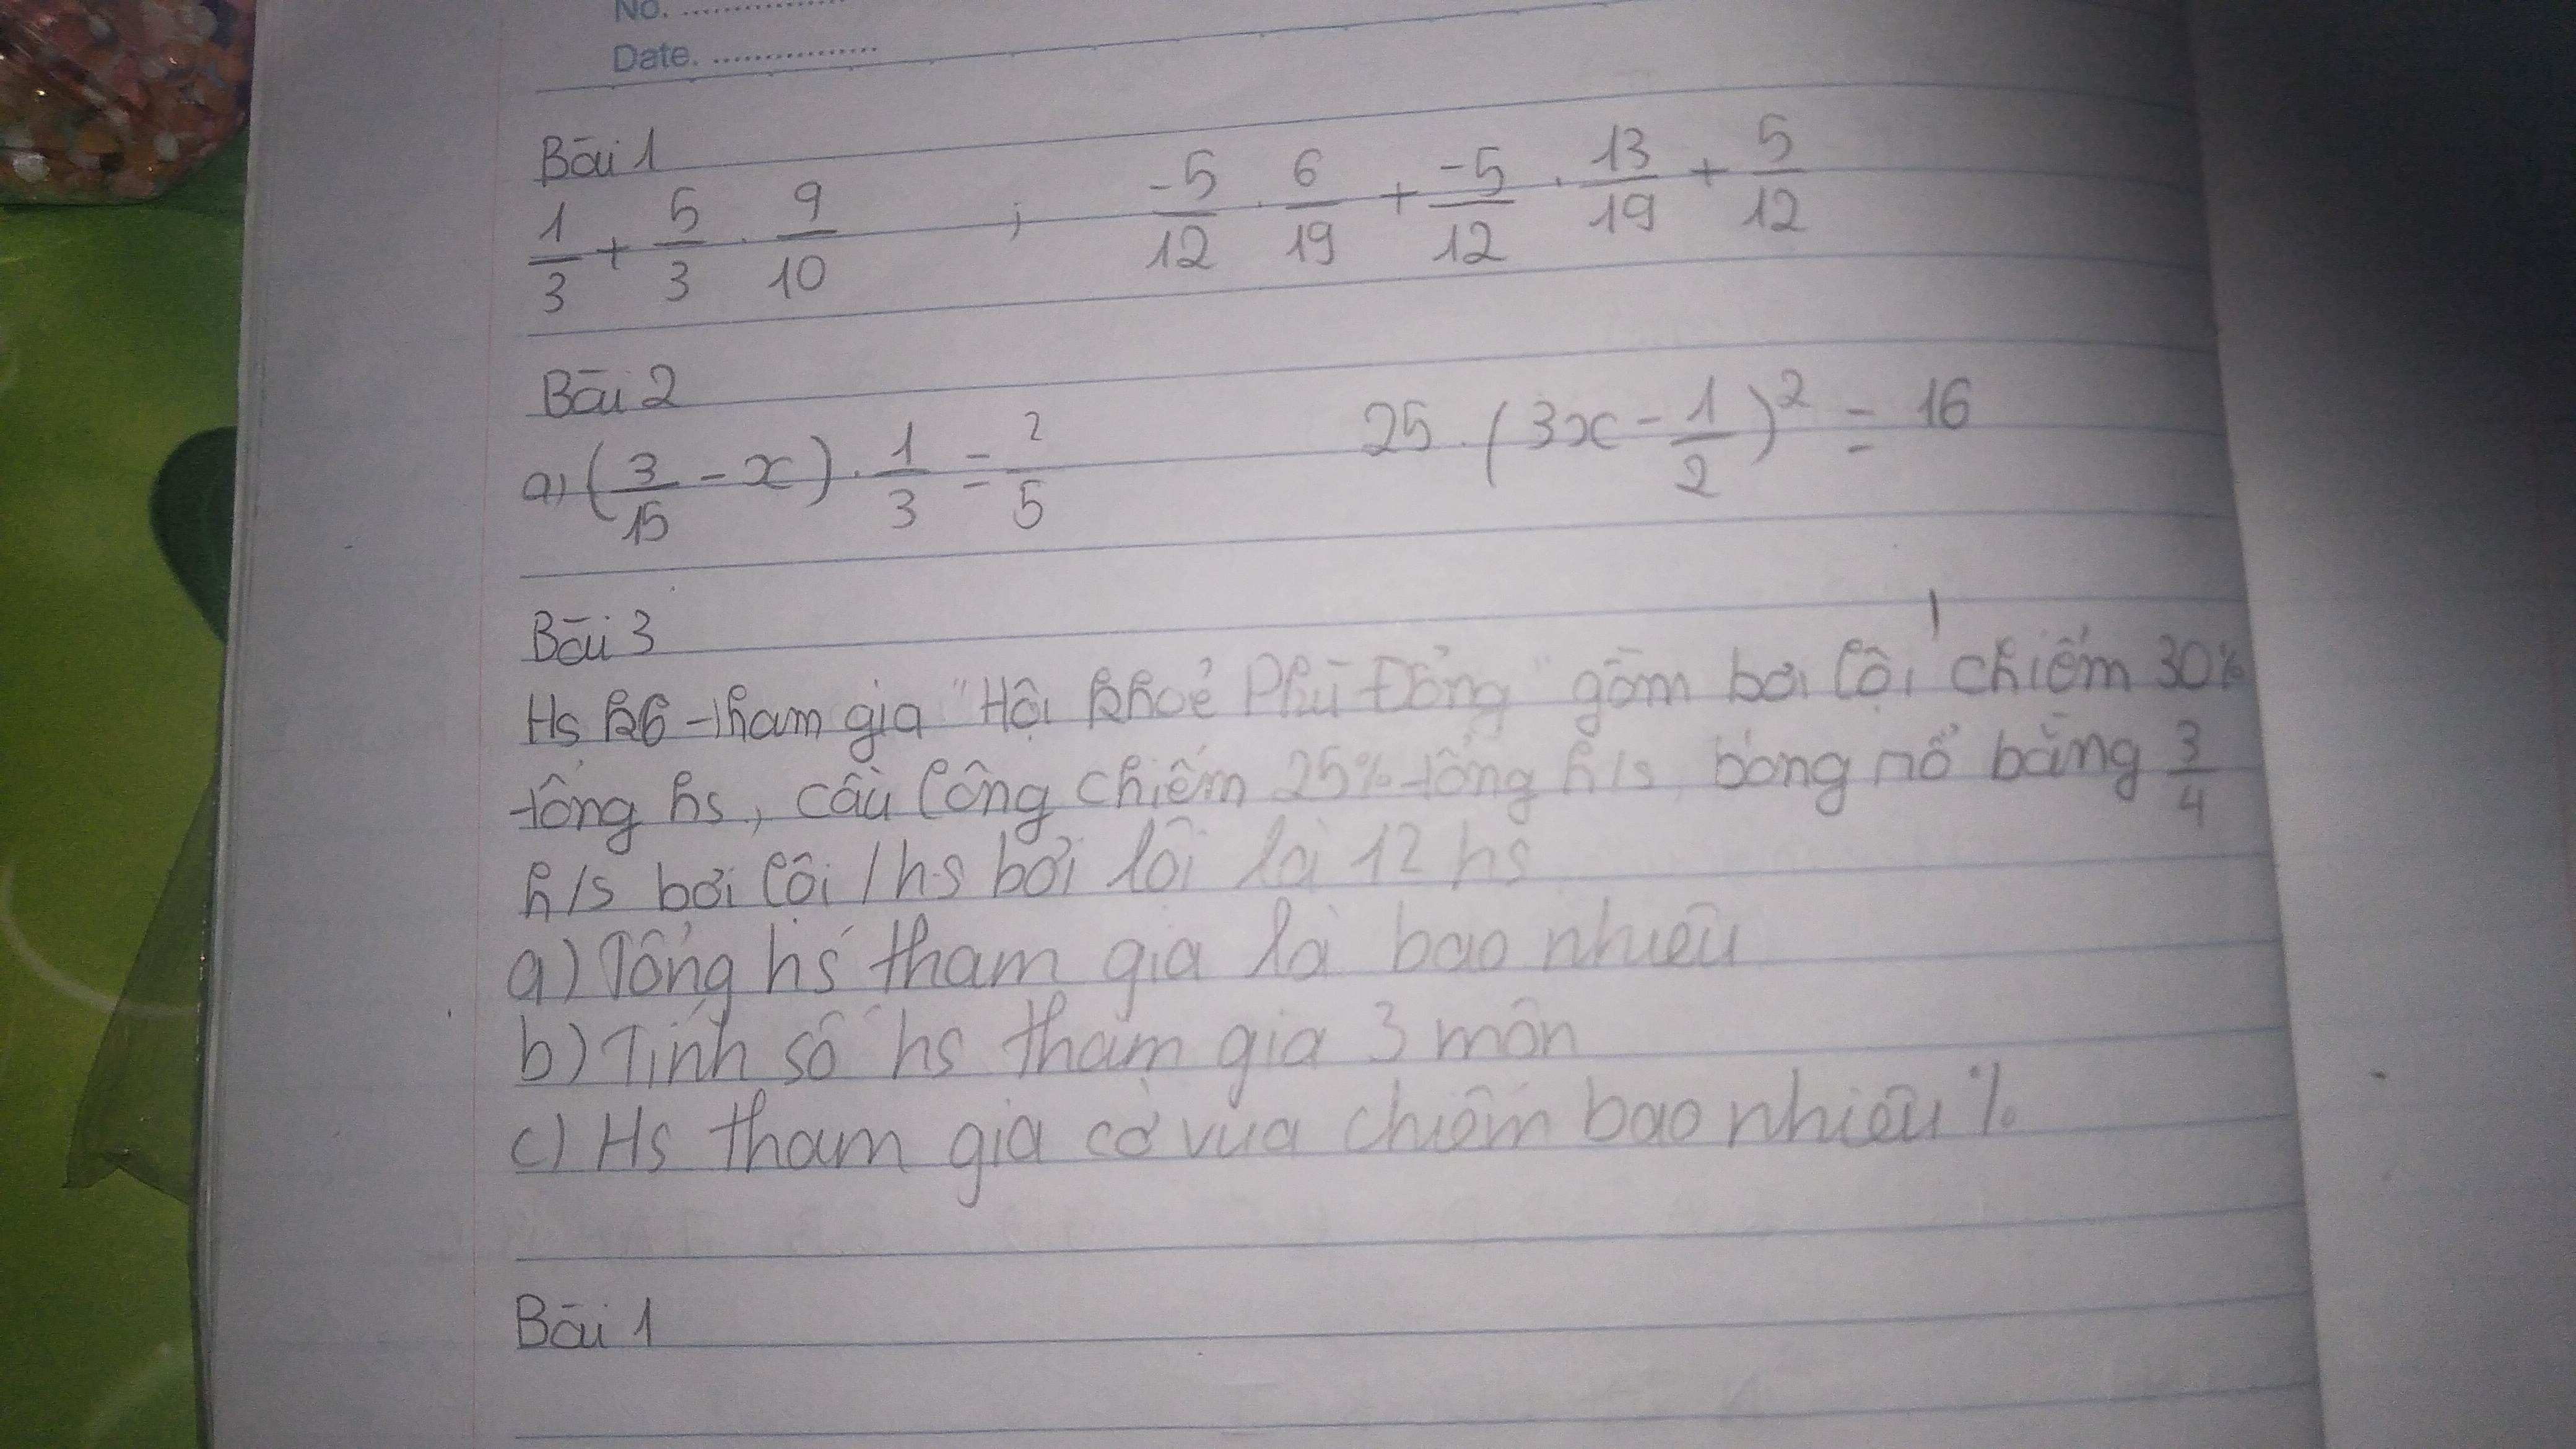 No. ................
Date. ................
Bài 1
1/3 + 5/3 . 9/10 ; -5/12 . 6/19 + -5/12 . 13/19 + 5/12
Bài 2
a) (3/15 - x) . 1/3 = 2/5 25 . (3x - 1/2)² = 16
Bài 3
Hs k6 tham gia "Hội khoẻ Phù Đổng" gồm bơi lội chiếm 30%
tổng hs, cầu lông chiếm 25% tổng h/s, bóng rổ bằng 3/4
h/s bơi lội / hs bơi lội là 12 hs
a) Tổng hs tham gia là bao nhiêu
b) Tính số hs tham gia 3 môn
c) Hs tham gia cờ vua chiếm bao nhiêu %
Bài 1